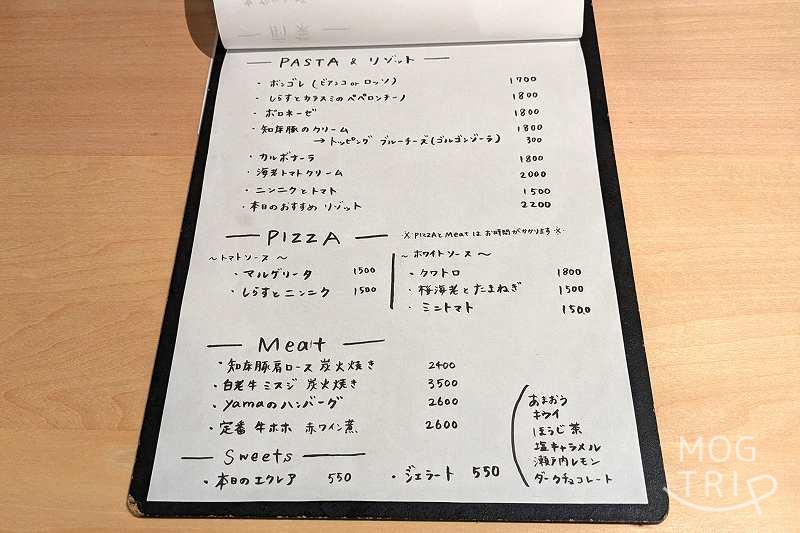 — PASTA & リゾット —
・ボンゴレ (ビアンコ or ロッソ) 1700
・しらすとカラスミのペペロンチーノ 1800
・ボロネーゼ 1800
・知床豚のクリーム 1800
→ トッピング ブルーチーズ(ゴルゴンゾーラ) 300
・カルボナーラ 1800
・海老トマトクリーム 2000
・ニンニクとトマト 1500
・本日のおすすめ リゾット 2200
— PIZZA — ※PIZZAとMeatは お時間がかかります※
〜トマトソース〜
・マルゲリータ 1500
・しらすとニンニク 1500
〜ホワイトソース〜
・クワトロ 1800
・桜海老とたまねぎ 1500
・ミニトマト 1500
— Meat —
・知床豚肩ロース 炭火焼き 2400
・白老牛ミスジ 炭火焼き 3500
・yamaのハンバーグ 2600
・定番 牛ホホ 赤ワイン煮 2600
— Sweets —
・本日のエクレア 550
・ジェラート 550
あまおう
キウイ
ほうじ茶
塩キャラメル
瀬戸内レモン
ダークチョコレート
MOG
TRIP